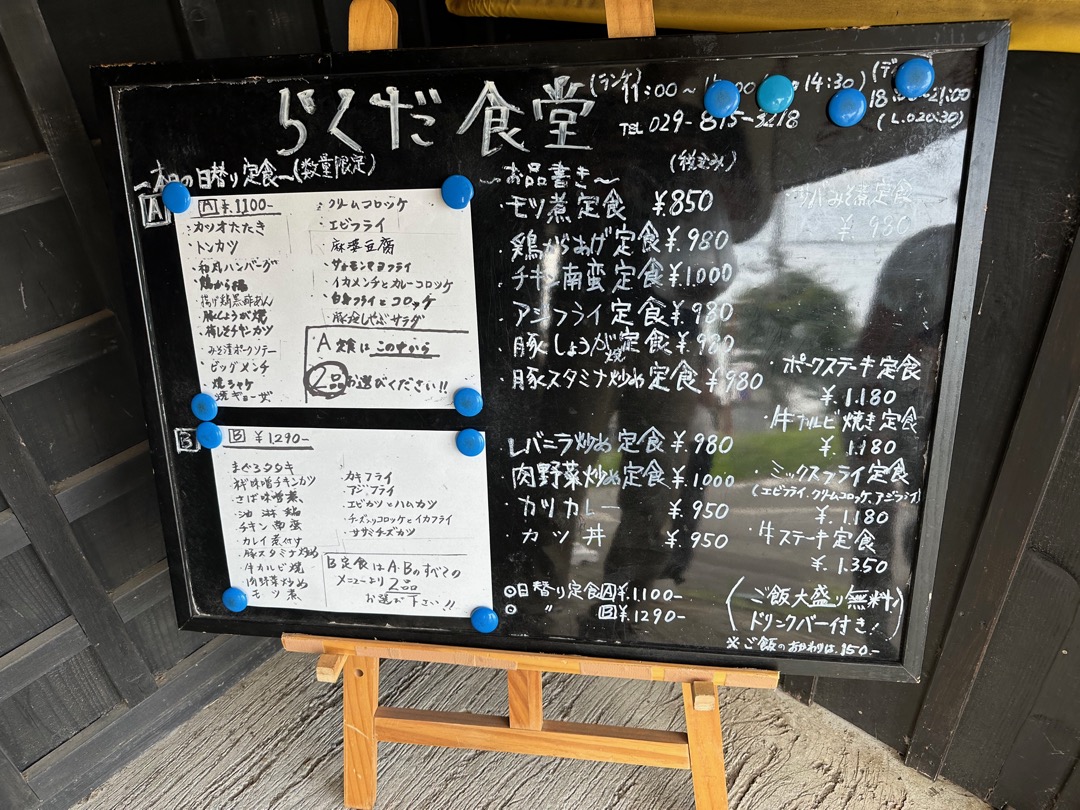 らくだ食堂
(ランチ)
14:30)
TEL 029-875-3218
18:00~21:00
(L.O20:30)
~本日の日替り定食~(数量限定)
A
A ¥.1100-
・カツオたたき
・トンカツ
・和風ハンバーグ
・鶏から揚
・揚げ鶏黒酢あん
・豚しょうが焼
・梅しそチキンカツ
・みそ漬ポークソテー
・ビッグメンチ
・焼シャケ
・焼ギョーザ
・クリームコロッケ
・エビフライ
・麻婆豆腐
・イカメンチとカレーコロッケ
・白身フライとコロッケ
・豚冷しゃぶサラダ
A定食はこの中から
2品お選びください!!
B
B ¥1,290-
・まぐろタタキ
・味噌チキンカツ
・さば味噌煮
・油淋鶏
・チキン南蛮
・カレイ煮付け
・豚スタミナ炒め
・牛カルビ焼
・肉野菜炒め
・モツ煮
・カキフライ
・アジフライ
・エビカツとハムカツ
・チーズ入りコロッケとイカフライ
・ササミチーズカツ
B定食はA・Bのすべての
メニューより2品
お選び下さい!!
~お品書き~
(税込み)
・モツ煮定食 ¥.850
・鶏からあげ定食 ¥.980
・チキン南蛮定食 ¥1.000
・アジフライ定食 ¥.980
・豚しょうが焼定食 ¥.980
・豚スタミナ炒め定食 ¥980
・レバニラ炒め定食 ¥.980
・肉野菜炒め定食 ¥.1000
・カツカレー ¥.950
・カツ丼 ¥.950
サバみそ煮定食
¥.980
・ポークステーキ定食
¥.1.180
・牛カルビ焼き定食
¥.1.180
・ミックスフライ定食
(エビフライ.クリームコロッケ.アジフライ)
¥.1.180
・牛ステーキ定食
¥.1.350
◎日替り定食A¥.1.100-
◎ 〃 B¥.1290-
(ご飯大盛り無料♪
ドリンクバー付き!)
※ご飯のおかわりは.150.-